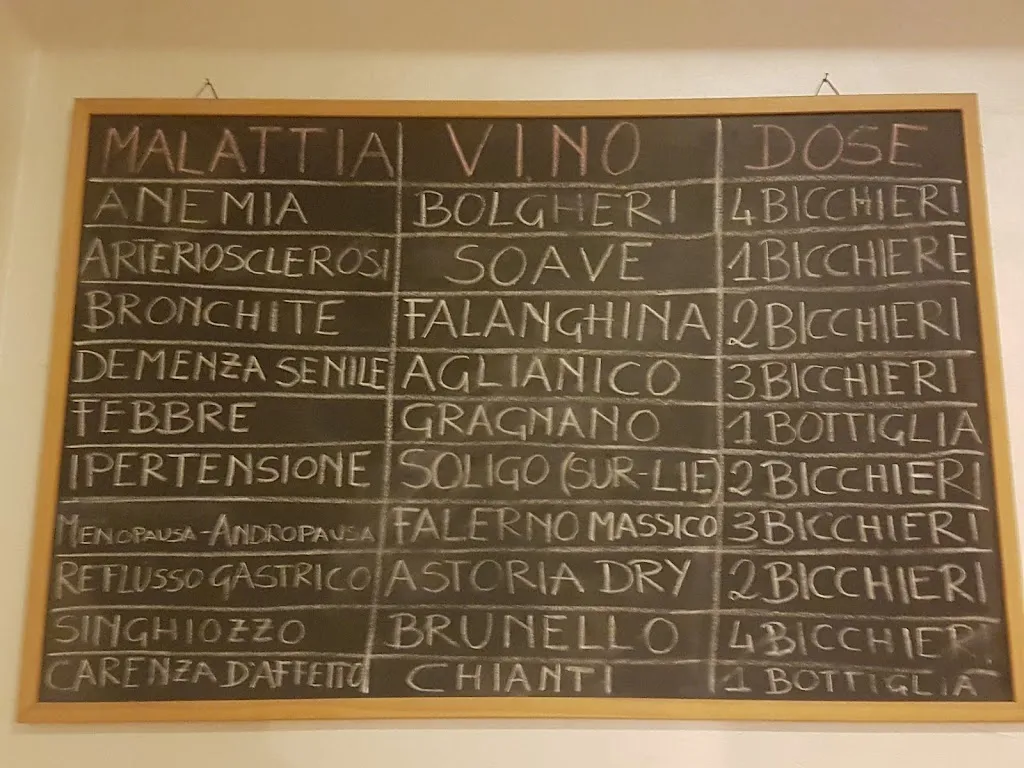 MALATTIA VINO DOSE
ANEMIA BOLGHERI 4 BICCHIERI
ARTERIOSCLEROSI SOAVE 1 BICCHIERE
BRONCHITE FALANGHINA 2 BICCHIERI
DEMENZA SENILE AGLIANICO 3 BICCHIERI
FEBBRE GRAGNANO 1 BOTTIGLIA
IPERTENSIONE SOLIGO (SUR-LIE) 2 BICCHIERI
MENOPAUSA-ANDROPAUSA FALERNO MASSICO 3 BICCHIERI
REFLUSSO GASTRICO ASTORIA DRY 2 BICCHIERI
SINGHIOZZO BRUNELLO 4 BICCHIERI
CARENZA D'AFFETTO CHIANTI 1 BOTTIGLIA